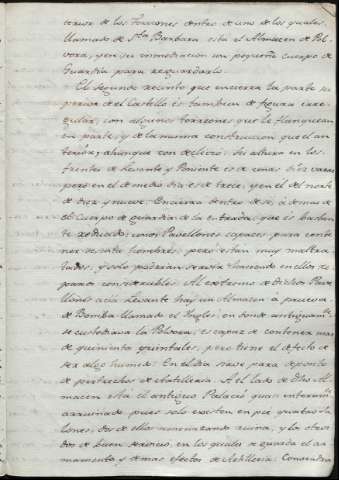 terior de los Torreones dentro de uno de los quales,
llamado de Sta. Barbara está el Almazen de Pol-
vora, y en su inmediacion un pequeño cuerpo de
Guardia para resguardarlo.
El segundo recinto que encierra la parte su-
perior del Castillo es tambien de figura irre-
gular, con algunos torreones que le flanquean
en parte, y de la misma construccion que el an-
terior; ahunque con declivio. Su altura en los
frentes de Levante y Poniente es de unas diez varas
pero en el de medio dia es de trece, y en el del norte
de diez y nueve. Encierra dentro de si, á demas de
el Cuerpo de guardia de la entrada, que es bastan-
te reducido, unos Pavellones capaces para conte-
ner sesenta hombres, pero están muy maltra-
tados, y solo podrian servir haciendo en ellos re-
paros considerables. Al extremo de dichos Pave-
llones acia Levante hay un Almazen á prueva
de Bomba llamado el Ingles, en donde antiguamte.
se custodiava la Polvora, es capaz de contener mas
de quinientos quintales, pero tiene el defecto de
ser algo humedo: En el dia sirve para deposito
de pertrechos de Artilleria. Al lado de dho. Al-
mazen está el antiguo Palacio quasi enteramte.
arruinado pues solo existen en pie quatro sa-
lones, dos de ellos amenazando ruina, y los otros
dos de buen servicio, en los quales se guarda el ar-
mamento y demas efectos de Artilleria: Conserva